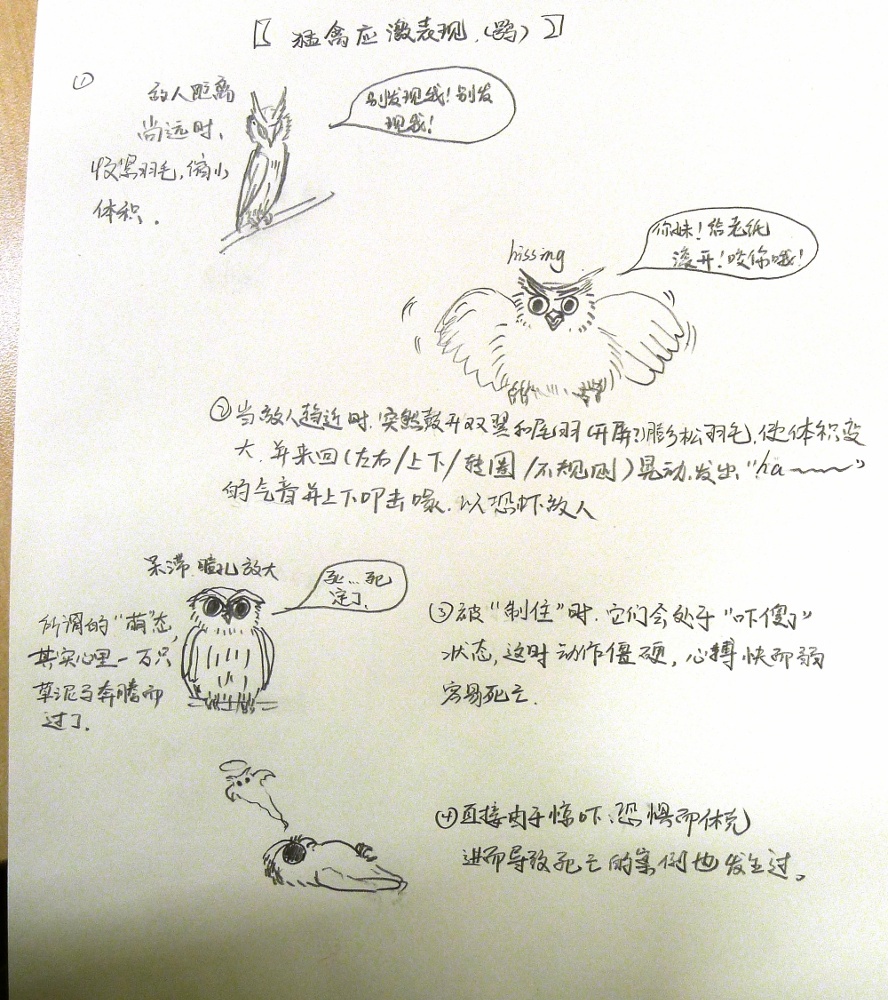 【猛禽应激表现.(鸮)】
①
敌人距离
尚远时,
收紧羽毛,缩小
体积.
别发现我!别发
现我!
hissing
你妹!给老纸
滚开!咬你哦!
②当敌人趋近时.突然鼓开双翼和尾羽(开屏?)膨松羽毛.使体积变
大.并来回(左右/上下/转圈/不规则)晃动.发出"ha~~~"
的气音并上下叩击喙.以恐吓敌人
呆滞.瞳孔放大
死...死
定了.
所谓的"萌"态,
其实心里一万只
草泥马奔腾而
过了.
③被"制住"时.它们会处于"吓傻了"
状态,这时动作僵硬,心搏快而弱
容易死亡.
④直接由于惊吓、恐惧而休克
进而导致死亡的案例也发生过。